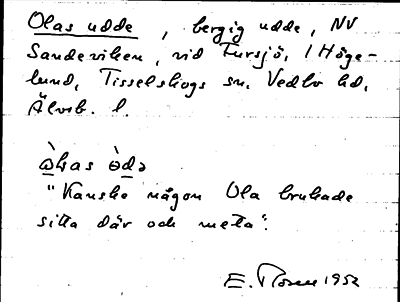 Olas udde, bergig udde, NV
Sandeviken, vid Fursjö, i Höge-
lund, Tisselskogs sn. Vedbo hd,
Älvsb. l.
òlas ùdə
"Kanske någon Ola brukade
sitta där och meta".
E. 1952